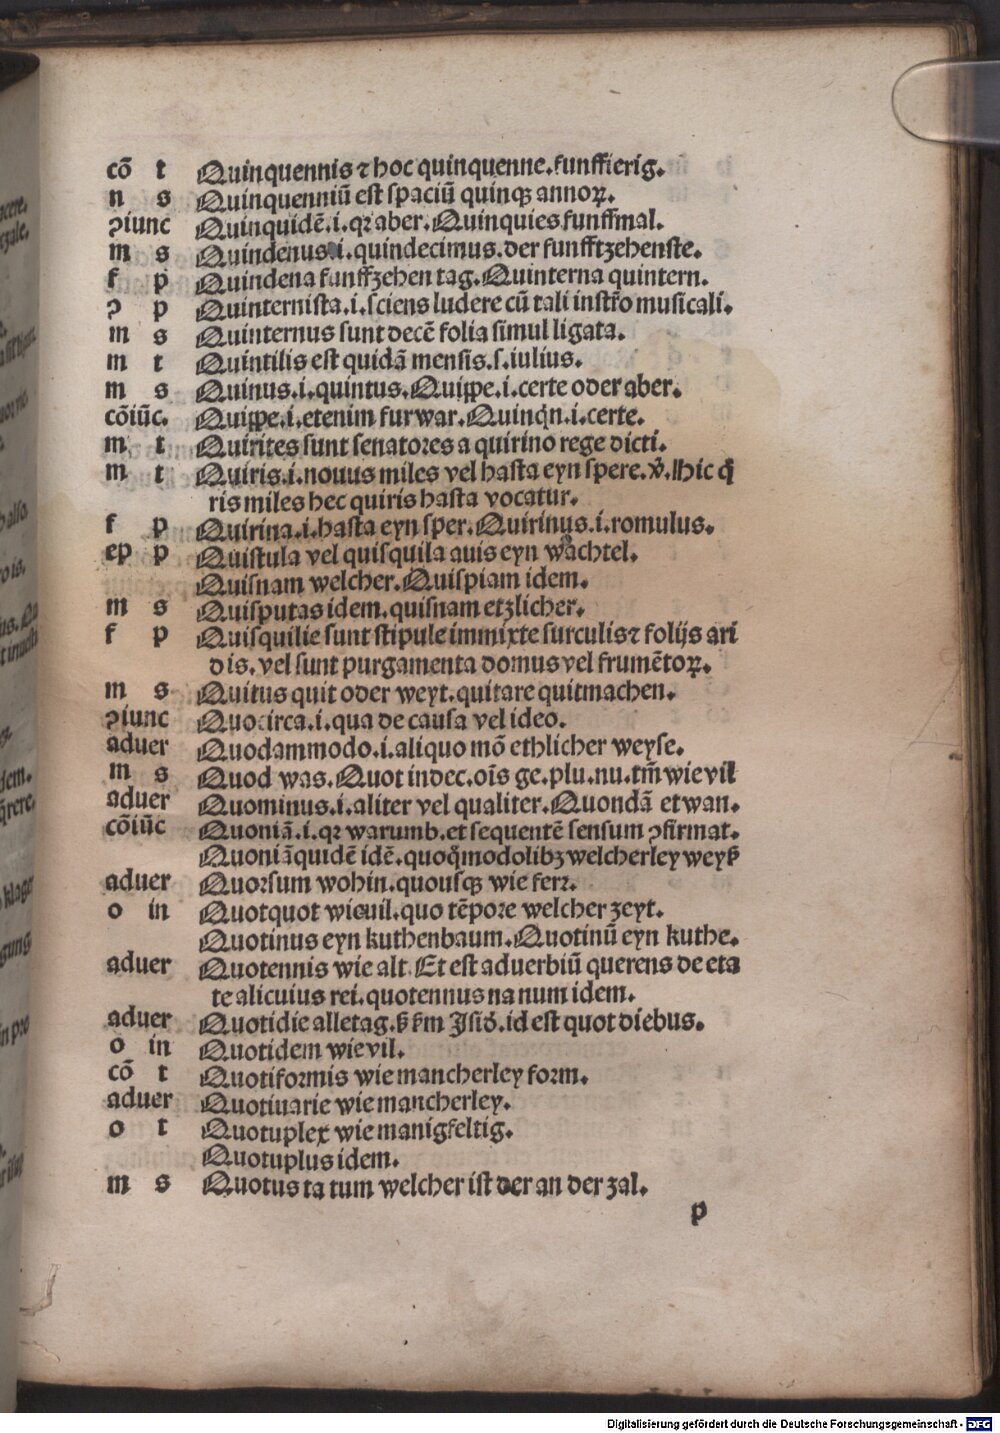 cõ t Quinquennis ⁊ hoc quinquenne.funffierig.
n s Quinquenniũ est spaciũ quinqꝫ annoꝝ.
ꝯiunc Quinquidẽ.i.qꝛ aber.Quinquies funffmal.
m s Quindenus.i.quindecimus.der funfftzehenste.
f p Quindena funffzehen tag.Quinterna quintern.
ꝯ p Quinternista.i.sciens ludere cũ tali instr̃o musicali.
m s Quinternus sunt decẽ folia simul ligata.
m t Quintilis est quidã mensis.s.iulius.
m s Quinus.i.quintus.Quippe.i.certe oder aber.
cõiũc. Quippe.i.etenim furwar.Quinqͥn.i.certe.
m t Quirites sunt senatores a quirino rege dicti.
m t Quiris.i.nouus miles vel hasta eyn spere.v̾.Hic qͥ
ris miles hec quiris hasta vocatur.
f p Quirina.i.hasta eyn sper.Quirinus.i.romulus.
ep p Quistula vel quisquila auis eyn wachtel.
Quisnam welcher.Quispiam idem.
m s Quisputas idem.quisnam etzlicher.
f p Quisquilie sunt stipule immixte surculis⁊ folijs ari
dis.vel sunt purgamenta domus vel frumẽtoꝝ.
m s Quitus quit oder weyt.quitare quitmachen.
ꝯiunc Quocirca.i.qua de causa vel ideo.
aduer Quodammodo.i.aliquo mõ ethlicher weyse.
m s Quod was.Quot indec.oĩs ge.plu.nu.tm̃ wie vil
aduer Quominus.i.aliter vel qualiter.Quondã etwan.
cõiũc Quoniã.i.qꝛ warumb.et sequentẽ sensum ꝯfirmat.
Quoniãquidẽ idẽ.quoqͦmodolibꝫ welcherley weyß
aduer Quorsum wohin.quousqꝫ wie ferr.
o in Quotquot wieuil.quo tẽpore welcher zeyt.
Quotinus eyn kuthenbaum.Quotinũ eyn kuthe.
aduer Quotennis wie alt.Et est aduerbiũ querens de eta
te alicuius rei.quotennus na num idem.
aduer Quotidie alletag.ẞ ẞm Jsid̾.id est quot diebus.
o in Quotidem wievil.
cõ t Quotiformis wie mancherley form.
aduer Quotiuarie wie mancherley.
o t Quotuplex wie manigfeltig.
Quotuplus idem.
m s Quotus ta tum welcher ist der an der zal.
p
Digitalisierung gefördert durch die Deutsche Forschungsgemeinschaft - DFG